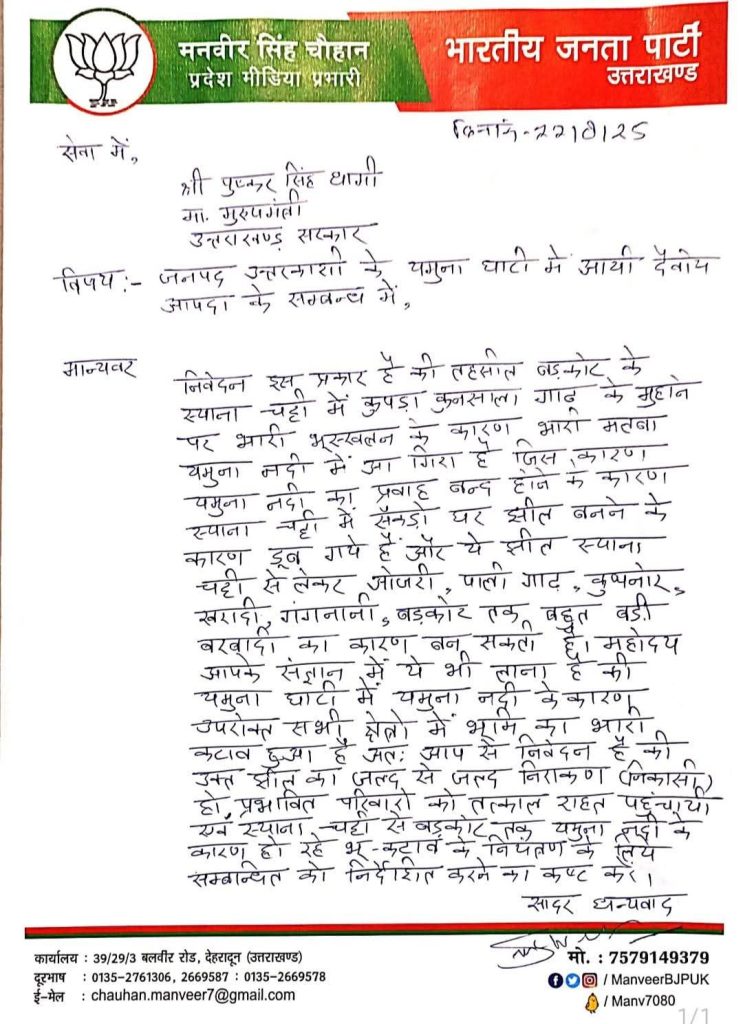 मनवीर सिंह चौहान
प्रदेश मीडिया प्रभारी
भारतीय जनता पार्टी
उत्तराखण्ड
दिनांक-22/8/25
सेवा में,
श्री पुष्कर सिंह धामी
मा. मुख्यमंत्री
उत्तराखण्ड सरकार
विषय:- जनपद उत्तरकाशी के यमुना घाटी में आयी दैवीय
आपदा के सम्बन्ध में,
मान्यवर
निवेदन इस प्रकार है की तहसील बड़कोट के
स्याना चट्टी में कुपड़ा कुनसाला गाढ़ के मुहाने
पर भारी भूस्खलन के कारण भारी मलबा
यमुना नदी में आ गिरा है जिस कारण
यमुना नदी का प्रवाह बन्द होने के कारण
स्याना चट्टी में सैकड़ो घर झील बनने के
कारण डूब गये हैं और ये झील स्याना
चट्टी से लेकर ओजरी, पाली गाढ, कुथनोर,
खरादी, गंगनानी, बड़कोट तक बहुत बड़ी
बरबादी का कारण बन सकती है। महोदय
आपके संज्ञान में ये भी लाना है की
यमुना घाटी में यमुना नदी के कारण
उपरोक्त सभी क्षेत्रो में भूमि का भारी
कटाव हुआ है अतः आप से निवेदन है की
उक्त झील का जल्द से जल्द निराकण (निकासी)
हो, प्रभावित परिवारो को तत्काल राहत पहुंचायी
एवं स्याना चट्टी से बड़कोट तक यमुना नदी के
कारण हो रहे भू-कटाव के नियंत्रण के लिये
सम्बन्धित को निर्देशित करने का कष्ट करें।
सादर धन्यवाद
कार्यालय : 39/29/3 बलवीर रोड, देहरादून (उत्तराखण्ड)
दूरभाष : 0135-2761306, 2669587 : 0135-2669578
ई-मेल : chauhan.manveer7@gmail.com
मो. : 7579149379
/ ManveerBJPUK
/ Manv7080
1/1